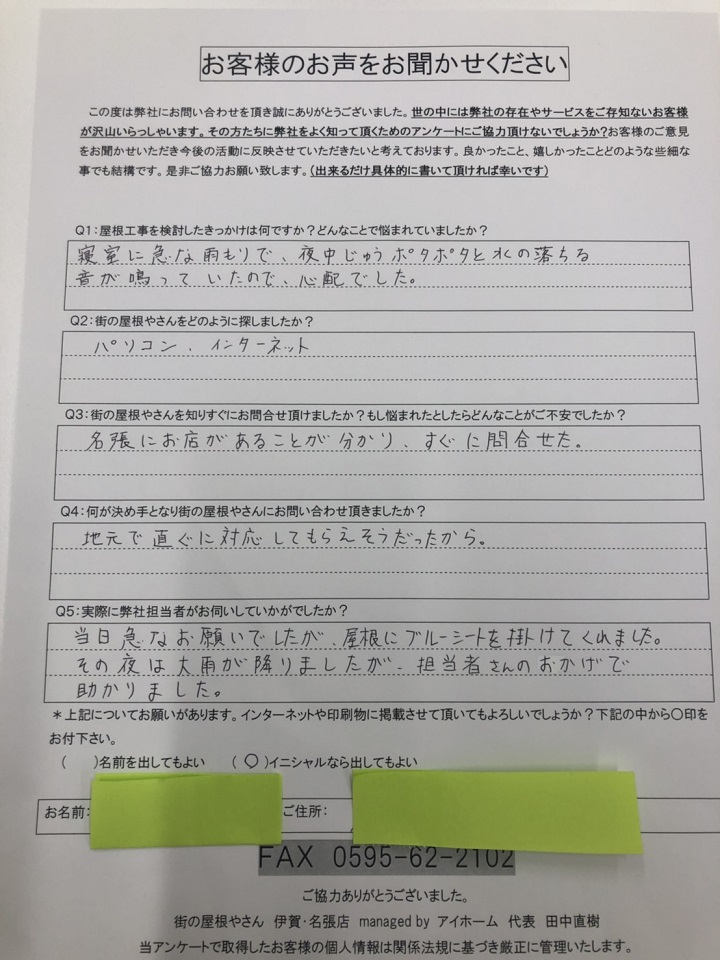 お客様のお声をお聞かせください
この度は弊社にお問い合わせを頂き誠にありがとうございました。世の中には弊社の存在やサービスをご存知ないお客様
が沢山いらっしゃいます。その方たちに弊社をよく知って頂くためのアンケートにご協力頂けないでしょうか？お客様のご意見
をお聞かせいただき今後の活動に反映させていただきたいと考えております。良かったこと、嬉しかったことどのような些細な
事でも結構です。是非ご協力お願い致します。（出来るだけ具体的に書いて頂ければ幸いです）
Q1：屋根工事を検討したきっかけは何ですか？どんなことで悩まれていましたか？
寝室に急な雨もりで、夜中じゅうポタポタと水の落ちる
音が鳴っていたので、心配でした。
Q2：街の屋根やさんをどのように探しましたか？
パソコン、インターネット
Q3：街の屋根やさんを知りすぐにお問合せ頂けましたか？もし悩まれたとしたらどんなことがご不安でしたか？
名張にお店があることが分かり、すぐに問合せた。
Q4：何が決め手となり街の屋根やさんにお問い合わせ頂きましたか？
地元で直ぐに対応してもらえそうだったから。
Q5：実際に弊社担当者がお伺いしていかがでしたか？
当日急なお願いでしたが、屋根にブルーシートを掛けてくれました。
その夜は大雨が降りましたが、担当者さんのおかげで
助かりました。
＊上記についてお願いがあります。インターネットや印刷物に掲載させて頂いてもよろしいでしょうか？下記の中から〇印を
お付下さい。
（　）名前を出してもよい　（〇）イニシャルなら出してもよい
お名前：　ご住所：
FAX 0595-62-2102
ご協力ありがとうございました。
街の屋根やさん 伊賀・名張店 managed by アイホーム 代表 田中直樹
当アンケートで取得したお客様の個人情報は関係法規に基づき厳正に管理いたします。